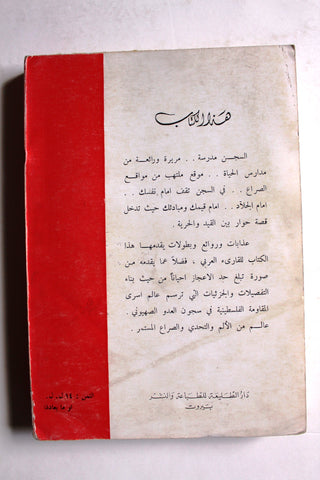 هذا الكتاب
السجن مدرسة . . مريرة ورائعة من
مدارس الحياة . . موقع ملتهب من مواقع
الصراع . . في السجن تقف امام نفسك . .
امام الجلاد . . امام قيمك ومبادئك حيث تدخل
قصة حوار بين القيد والحرية .
عذابات وروائع وبطولات يقدمها هذا
الكتاب للقارىء العربي ، فضلاً عما يقدمه من
صورة تبلغ حد الاعجاز احياناً من حيث بناء
التفصيلات والجزئيات التي ترسم عالم اسرى
المقاومة الفلسطينية في سجون العدو الصهيوني .
عالم من الألم والتحدي والصراع المستمر .
دار الطليعة للطباعة والنشر
بيروت
الثمن : ١٤ ل. ل.
او ما يعادلها